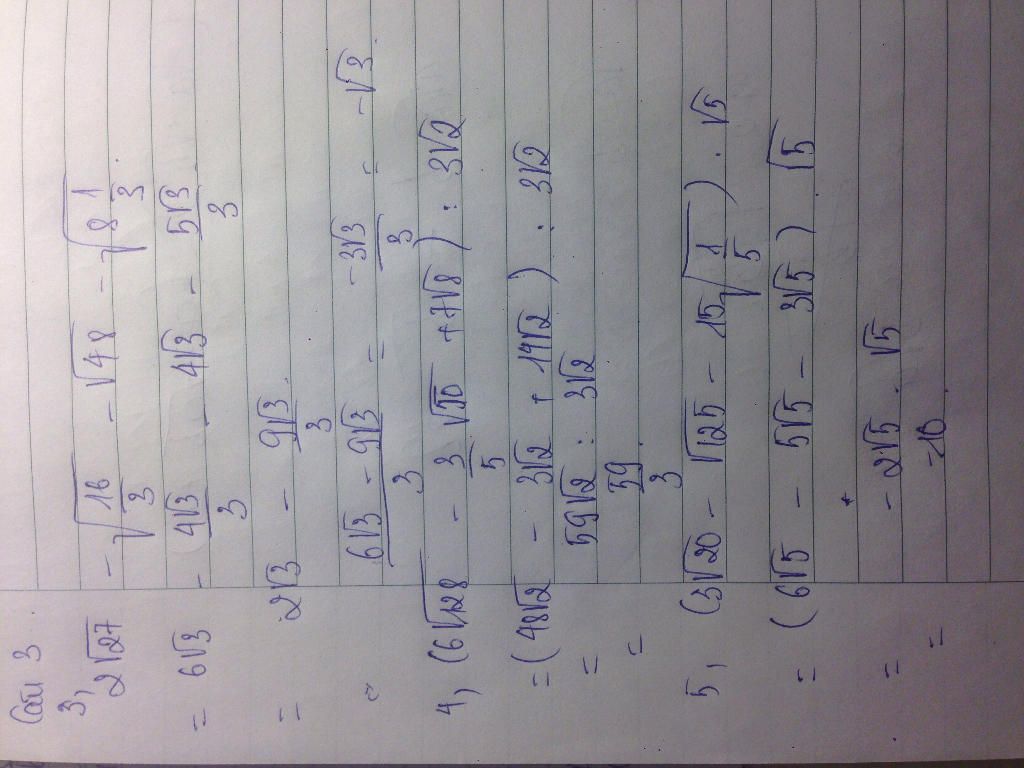 Câu 3
3,
2√27 - √(16/3) - √48 - √(8 1/3)
= 6√3 - 4√3/3 - 4√3 - 5√3/3
= 2√3 - 9√3/3
= (6√3 - 9√3)/3 = -3√3/3 = -√3
4, (6√128 - 3/5 √50 + 7√8) : 3√2
= (48√2 - 3√2 + 14√2) : 3√2
= 59√2 : 3√2
= 59/3
5, (3√20 - √125 - 15√(1/5)) . √5
= (6√5 - 5√5 - 3√5) √5
= -2√5 . √5
= -10